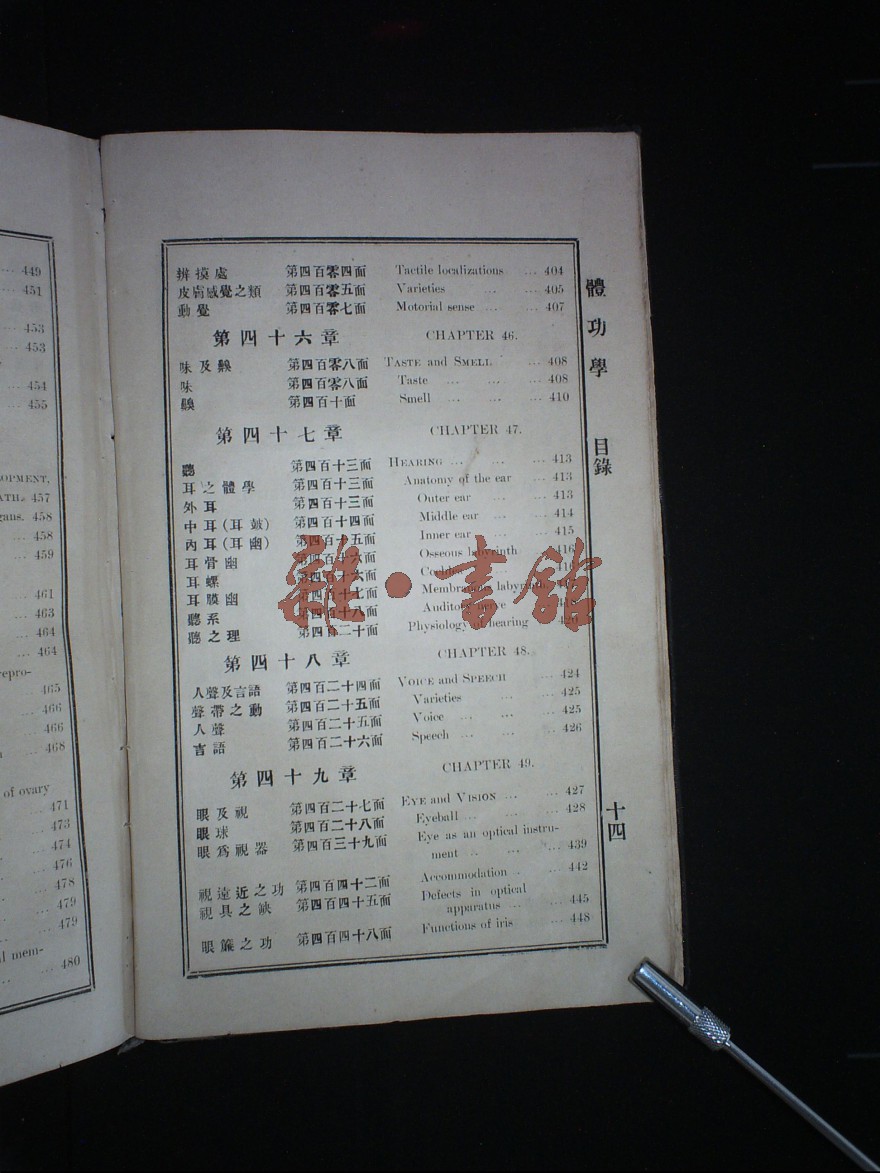 449
451
453
453
454
455
OPMENT,
ATH. 457
gans. 458
458
459
461
463
464
464
repro-
465
466
466
468
of ovary
471
473
474
476
478
479
479
al mem-
480
辨摸處 第四百零四面 Tactile localizations ... 404
皮膚感覺之類 第四百零五面 Varieties ... ... 405
動覺 第四百零七面 Motorial sense ... ... 407
第四十六章 CHAPTER 46.
味及齅 第四百零八面 TASTE and SMELL ... 408
味 第四百零八面 Taste ... ... ... 408
齅 第四百十面 Smell ... ... ... 410
第四十七章 CHAPTER 47.
聽 第四百十三面 HEARING ... ... ... 413
耳之體學 第四百十三面 Anatomy of the ear ... 413
外耳 第四百十三面 Outer ear ... ... 413
中耳(耳鼓) 第四百十四面 Middle ear ... ... 414
內耳(耳幽) 第四百十五面 Inner ear ... ... 415
耳骨幽 第四百十六面 Osseous labyrinth 416
耳螺 第四百十六面 Cochlea 416
耳膜幽 第四百十七面 Membranous labyrinth
聽系 第四百十八面 Auditory nerve
聽之理 第四百二十面 Physiology of hearing 420
雜·書館
第四十八章 CHAPTER 48.
人聲及言語 第四百二十四面 VOICE and SPEECH ... 424
聲帶之動 第四百二十五面 Varieties ... ... 425
人聲 第四百二十五面 Voice ... ... ... 425
言語 第四百二十六面 Speech ... ... ... 426
第四十九章 CHAPTER 49.
眼及視 第四百二十七面 EYE and VISION ... ... 427
眼球 第四百二十八面 Eyeball ... ... ... 428
眼爲視器 第四百三十九面 Eye as an optical instru-
ment ... ... ... 439
視遠近之功 第四百四十二面 Accommodation ... ... 442
視具之缺 第四百四十五面 Defects in optical
apparatus ... ... 445
眼簾之功 第四百四十八面 Functions of iris ... 448
體功學 目錄
十四